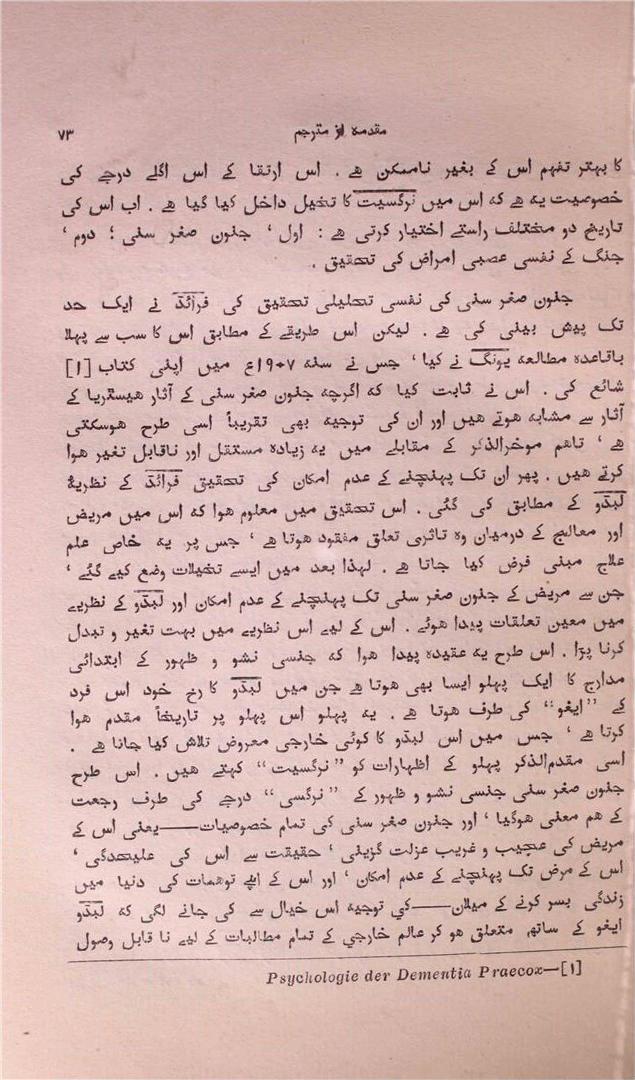 مقدمہ از مترجم ۷۳
کا بہتر تفہم اس کے بغیر ناممکن ہے ۔ اس ارتقا کے اس اگلے درجے کی
خصوصیت یہ ہے کہ اس میں نرگسیت کا تخیل داخل کیا گیا ہے ۔ اب اس کی
تاریخ دو مختلف راستے اختیار کرتی ہے : اول ' جنون صغر سنی ؛ دوم '
جنگ کے نفسی عصبی امراض کی تحقیق ۔
جنون صغر سنی کی نفسی تحلیلی تحقیق کی فرائڈ نے ایک حد
تک پیش بینی کی ہے ۔ لیکن اس طریقے کے مطابق اس کا سب سے پہلا
باقاعدہ مطالعہ یونگ نے کیا ' جس نے سنہ ۱۹۰۷ع میں اپنی کتاب [۱]
شائع کی ۔ اس نے ثابت کیا کہ اگرچہ جنون صغر سنی کے آثار ہیسٹریا کے
آثار سے مشابہ ہوتے ہیں اور ان کی توجیہ بھی تقریباً اسی طرح ہوسکتی
ہے ' تاہم موخرالذکر کے مقابلے میں یہ زیادہ مستقل اور ناقابل تغیر ہوا
کرتے ہیں ۔ پھر ان تک پہنچنے کے عدم امکان کی تحقیق فرائڈ کے نظریۂ
لبڈو کے مطابق کی گئی ۔ اس تحقیق میں معلوم ہوا کہ اس میں مریض
اور معالج کے درمیان وہ تاثری تعلق مفقود ہوتا ہے ' جس پر یہ خاص علم
علاج مبنی فرض کیا جاتا ہے ۔ لہذا بعد میں ایسے تخیلات وضع کیے گئے '
جن سے مریض کے جنون صغر سنی تک پہنچنے کے عدم امکان اور لبڈو کے نظریے
میں معین تعلقات پیدا ہوئے ۔ اس کے لیے اس نظریے میں بہت تغیر و تبدل
کرنا پڑا ۔ اس طرح یہ عقیدہ پیدا ہوا کہ جنسی نشو و ظہور کے ابتدائی
مدارج کا ایک پہلو ایسا بھی ہوتا ہے جن میں لبڈو کا رخ خود اس فرد
کے ”ایغو“ کی طرف ہوتا ہے ۔ یہ پہلو اس پہلو پر تاریخاً مقدم ہوا
کرتا ہے ' جس میں اس لبڈو کا کوئی خارجی معروض تلاش کیا جاتا ہے ۔
اسی مقدم الذکر پہلو کے اظہارات کو ”نرگسیت“ کہتے ہیں ۔ اس طرح
جنون صغر سنی جنسی نشو و ظہور کے ”نرگسی“ درجے کی طرف رجعت
کے ہم معنی ہوگیا ' اور جنون صغر سنی کی تمام خصوصیات——یعنی اس کے
مریض کی عجیب و غریب عزلت گزینی ' حقیقت سے اس کی علیحدگی '
اس کے مرض تک پہنچنے کے عدم امکان ' اور اس کے اپنے توهمات کی دنیا میں
زندگی بسر کرنے کے میلان——کي توجیہ اس خیال سے کی جانے لگی کہ لبڈو
ایغو کے ساتھ متعلق ہو کر عالم خارجي کے تمام مطالبات کے لیے نا قابل وصول
Psychologie der Dementia Praecox—[۱]